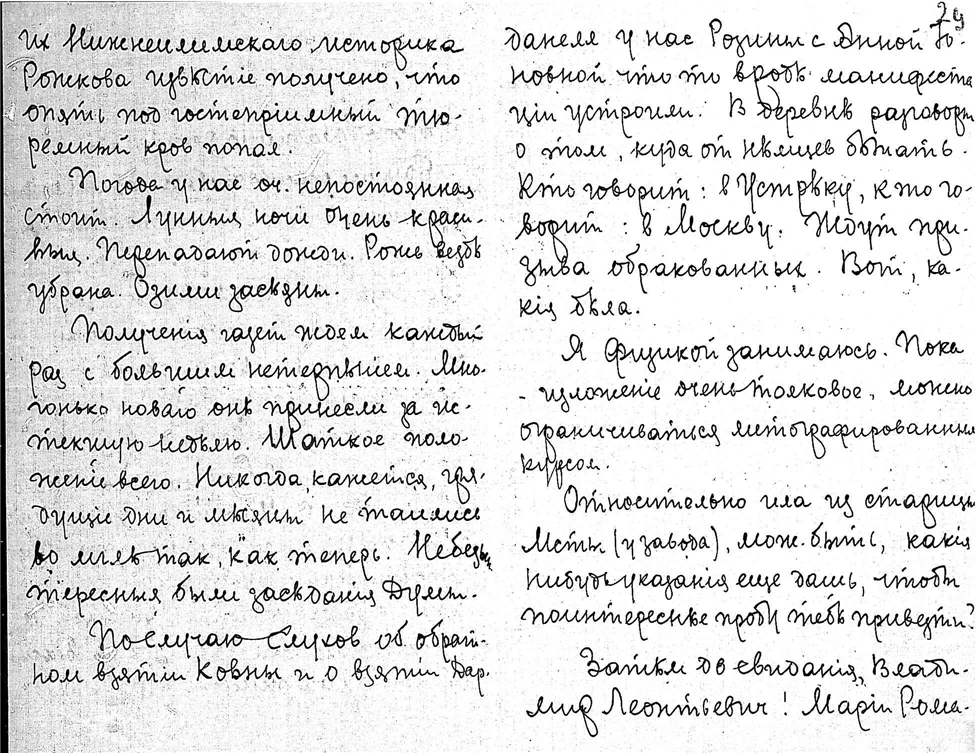 их Нижнеилимскаго историка
Рожкова извѣстіе получено, что
опять под гостепріимный тю-
ремный кров попал.
Погода у нас оч. непостоянная
стоит. Лунныя ночи очень краси-
выя. Перепадают дожди. Рожь вездѣ
убрана. Озими засѣяны.
Полученія газет ждем каждый
раз с большим нетерпѣнием. Мно-
гонько новаго онѣ принесли за ис-
текшую недѣлю. Шаткое поло-
женіе всего. Никогда, кажется, гря-
дущіе дни и мѣсяцы не таились
во мглѣ так, как теперь. Небезын-
тересныя были засѣданія Думы.
По случаю слухов об обрат-
ном взятіи Ковны и о взятіи Дар-
29
данелл у нас Розины с Анной Іо-
новной что то вродѣ манифеста
ціи устроили. В деревнѣ разговоры
о том, куда от нѣмцев бѣжать.
Кто говорит: в Устрѣку, кто го-
ворит: в Москву. Ждут при-
зыва обракованных. Вот, ка-
кія дѣла.
Я физикой занимаюсь. Пока
- изложеніе очень толковое, можно
ограничиваться литографированным
курсом.
Относительно ила из старицы
Мсты (у завода), мож. быть, какія
нибудь указанія еще дашь, чтобы
поинтереснѣе пробу тебѣ привезти?
Затѣм до свиданія, Влади-
мир Леонтьевич! Маріи Рома-